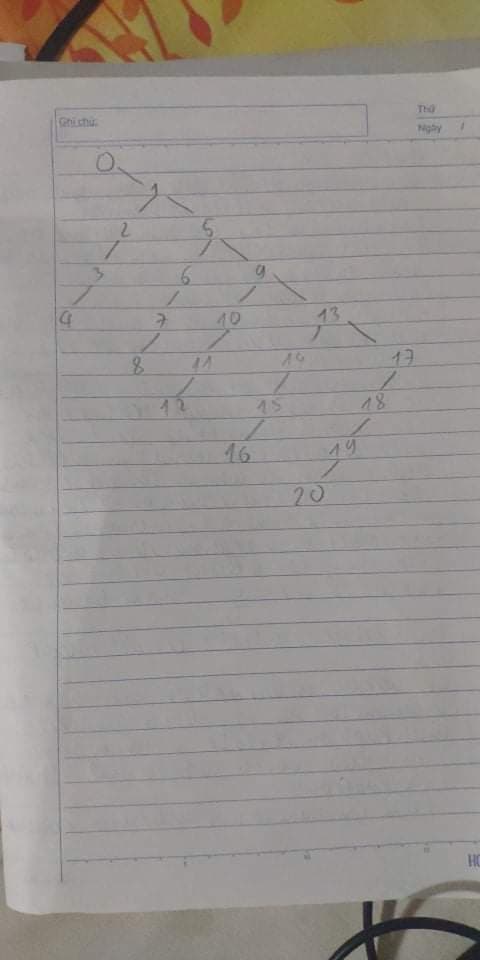 Ghi chú:
Thứ
Ngày /
0
1
2 5
3 6 9
4 7 10 13
8 11 14 17
12 15 18
16 19
20
5 10 15
HO